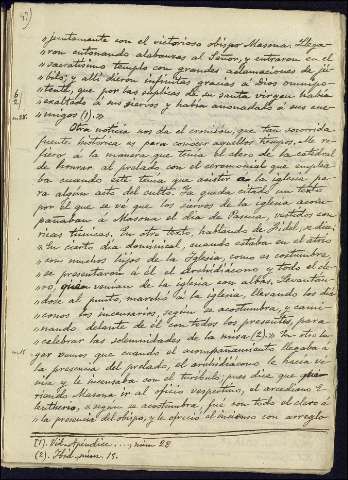 43)
"juntamente con el victorioso obispo Masona. Llega-
"ron entonando alabanzas al Señor, y entraron en el
"sacratísimo templo con grandes aclamaciones de jú-
"bilo; y allí dieron infinitas gracias á Dios omnipo-
"tente, que por las súplicas de su santa virgen había
"exaltado á sus siervos y había anonadado á sus ene-
"migos (1)."
Otra noticia nos da el emeritense, que tan socorrida
fuente histórica es para conocer aquellos tiempos. Me re-
fiero á la manera que tenía el clero de la catedral
de honrar al prelado, con el ceremonial que emplea-
ba cuando éste tenía que asistir á la iglesia pa-
ra algún acto del culto. Ya queda citado un texto
por el que se vé que los siervos de la iglesia acom-
pañaban á Masona el día de Pascua, vestidos con
ricas túnicas. En otro texto, hablando de Fidel, se dice:
"En cierto día dominical, cuando estaba en el atrio
"con muchos hijos de la Iglesia, como es costumbre,
"se presentaron á él el archidiácono y todo el cle-
"ro, que venían de la iglesia con albas. Levantán-
"dose al punto, marchó á la iglesia, llevando los diá-
"conos los incensarios, según se acostumbra, y cami-
"nando delante de él con todos los presentes, para
"celebrar las solemnidades de la misa (2)." En otro lu-
gar vemos que cuando el acompañamiento llegaba á
la presencia del prelado, el archidiácono le hacía ve-
nia y le incensaba con el turíbulo, pues dice que que-
riendo Masona ir al oficio vespertino, el arcediano E-
leutherio "según se acostumbra, fué con todo el clero á
"la presencia del obispo, y le ofreció el incienso con arreglo
(1). Vid. Apéndice ..., núm 28
(2). Ibid. núm. 15.